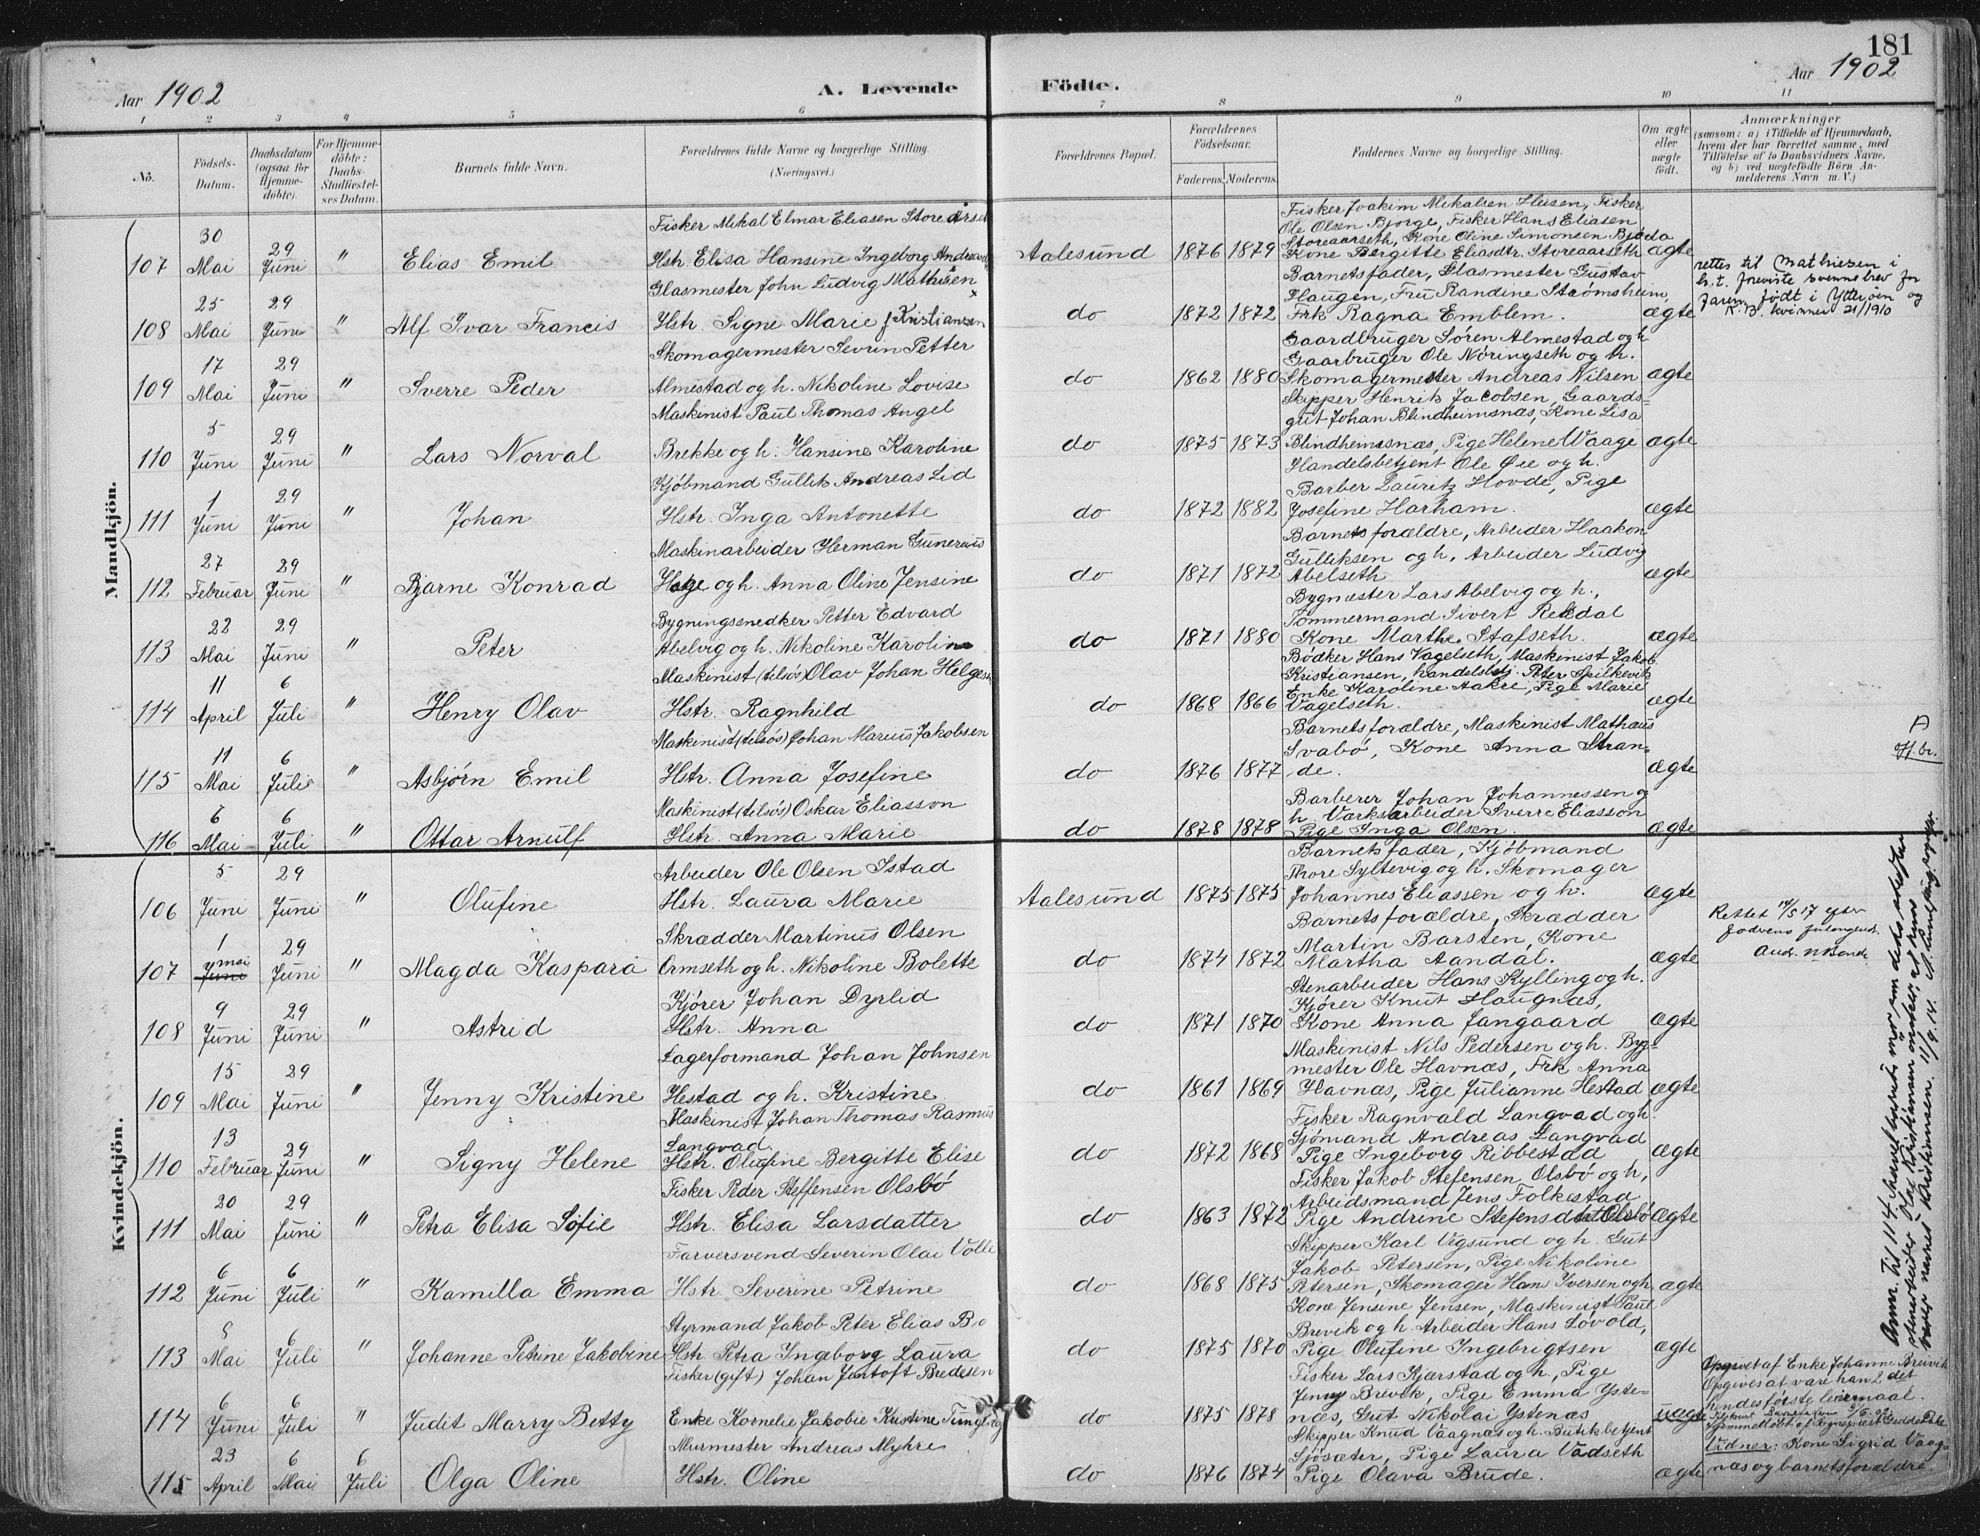 181
Aar 1902
A. Levende Födte.
Aar 1902
1 2 3 4 5 6 7 8 9 10 11
No.
Födsels-Datum.
Daabsdatum (ogsaa for Hjemme-döbte).
For Hjemme-döbte: Daabs-Stadfæstel-ses Datum.
Barnets fulde Navn.
Forældrenes fulde Navne og borgerlige Stilling.
(Næringsvei.)
Forældrenes Bopæl.
Forældrenes Födselsaar.
Faderens. Moderens.
Faddernes Navne og borgerlige Stilling.
Om ægte eller uægte födt.
Anmærkninger
(saasom: a) i Tilfælde af Hjemmedaab, hvem der har forrettet samme, med Tilföielse af to Daabsvidners Navne, og b) ved uægtefödte Börn An-melderens Navn m. V.)
Mandkjön.
107 30 Mai 29 Juni " Elias Emil
Fisker Mikal Elmar Eliasen Store
Hstr. Elisa Hansine Ingeborg
Aalesund 1876 1879
Fisker Joakim Mikalsen Heisen, Fisker
Ole Olsen Bjorge, Fisker Hans Eliasen
Storeaarseth, Kone Oline Simonsen
Kone Bergitte Eliasdtr. Storeaarseth ægte
108 25 Mai 29 Juni " Alf Ivar Francis
Glasmester John Ludvig Mathisen
Hstr. Signe Marie f Kristiansen
do 1872 1872
Barnets fader, Glasmester Gustav
Haugen, Fru Randine Strömsheim,
Frk Ragna Emblem. ægte
rettes til Mathiesen i
h.t. foreviste svennebrev for
faren, født i Ytterøen og
21/1910
109 17 Mai 29 Juni " Sverre Peder
Skomagermester Sevrin Petter
Almestad og h. Nikoline Lovise
do 1862 1880
Gaardbruger Sören Almestad og h
Gaarbruger Ole Nöringseth og h.
Skomagermester Andreas Nilsen ægte
110 5 Juni 29 Juni " Lars Norval
Maskinist Paul Thomas Angel
Brekke og h. Hansine Karoline
do 1875 1873
Skipper Henrik Jacobsen, Gaards-
gut Johan Blindheimsnæs, Kone Lisa
Blindhemsnæs, Pige Helene Waage ægte
111 1 Juni 29 Juni " Johan
Kjöbmand Gullik Andreas Lid
Hstr. Inga Antonette
do 1872 1882
Handelsbetjent Ole Øie og h.
Barber Lauritz Hovde, Pige
Josefine Harham. ægte
112 27 Februar 29 Juni " Bjarne Konrad
Maskinarbeider Herman Gunerius
Hage og h. Anna Oline Jensine
do 1871 1872
Barnets forældre, Arbeider Haakon
Gulliksen og h, Arbeider Ludvig
Abelseth ægte
113 22 Mai 29 Juni " Peter
Bygningssnedker Petter Edvard
Abelvig og h. Nikoline Karoline
do 1871 1880
Bygmester Lars Abelvig og h.,
Tømmermand Sivert Rekdal
Kone Marthe Stafseth. ægte
114 11 April 6 Juli " Henry Olav
Maskinist (tilsös) Olav Johan Helgesen
Hstr. Ragnhild
do 1868 1866
Bödker Hans Vagelseth, Maskinist Jakob
Kristiansen, handelsbtj. Peter Spilkevik
Enke Karoline Aakre, Pige Marie
Vagelseth. ægte
115 11 Mai 6 Juli " Asbjörn Emil
Maskinist (tilsös) Johan Marius Jakobsen
Hstr. Anna Josefine
do 1876 1877
Barnets forældre, Maskinist Mathæus
Svabö, Kone Anna Stran-
de. ægte
116 6 Mai 6 Juli " Ottar Arnulf
Maskinist (tilsös) Oskar Eliasson
Hstr. Anna Marie
do 1878 1878
Barberer Johan Johannessen og
h. Værksarbeider Sverre Eliasson
Pige Inga Olsen. ægte
Kvindekjön.
106 5 Juni 29 Juni " Olufine
Arbeider Ole Olsen Istad
Hstr. Laura Marie
Aalesund 1875 1875
Barnets fader, Kjöbmand
Thore Syltevig og h. Skomager
Johannes Eliassen og h. ægte
107 1 mai Juni 29 Juni " Magda Kaspara
Skrædder Martinus Olsen
Ormseth og h. Nikoline Bolette
do 1874 1872
Barnets forældre, Skrædder
Martin Barsten, Kone
Martha Aandal. ægte
Rettet 14/5 17 efter
108 9 Juni 29 Juni " Astrid
Kjörer Johan Dyrlid
Hstr. Anna
do 1871 1870
Stenarbeider Hans Kylling og h.
Kjörer Knut Haugnæs,
Kone Anna Jangaard ægte
109 15 Mai 29 Juni " Jenny Kristine
Lagerformand Johan Johnsen
Hestad og h. Kristine
do 1861 1869
Maskinist Nils Pedersen og h. Byg-
mester Ole Havnæs, Frk Anna
Havnæs, Pige Julianne Hestad ægte
110 13 Februar 29 Juni " Signy Helene
Maskinist Johan Thomas Rasmus
Langvad
Hstr. Olufine Bergitte Elise
do 1872 1868
Fisker Ragnvald Langvad og h.
Sjömand Andreas Langvad
Pige Ingeborg Ribbestad ægte
111 20 Mai 29 Juni " Petra Elisa Sofie
Fisker Peder Steffensen Olsbö
Hstr. Elisa Larsdatter
do 1863 1872
Fisker Jakob Stefensen Olsbö og h,
Arbeidsmand Jens Folkestad
Pige Andrine Stefensdtr Olsbö ægte
112 6 Juni 6 Juli " Kamilla Emma
Farversvend Severin Olai Volle
Hstr Severine Petrine
do 1868 1875
Skipper Karl Vigsund og h. Gut
Jakob Petersen, Pige Nikoline
Petersen, Skomager Hans Iversen og h ægte
113 8 Mai 6 Juli " Johanne Petrine Jakobine
Styrmand Jakob Peter Elias Bo
Hstr Petra Ingeborg Laura
do 1875 1870
Kone Jensine Jensen, Maskinist Paul
Brevik og h. Arbeider Hans Lövold,
Pige Olufine Ingebrigtsen ægte
114 6 Juni 6 Juli " Judit Marry Betty
Fisker (gift) Johan Jentoft Bredesen
Enke Kornelie Jakobie Kristine
do 1875 1878
Fisker Lars Kjærstad og h, Pige
Jenny Brevik, Pige Emma Yste-
næs, Gut Nikolai Ystenæs uægte
Opgivet af Enke Johanne Breivik
Opgives at være han 2 det
hendes förste leiermaal.
115 23 April 6 Mai 6 Juli Olga Oline
Murmester Andreas Myhre
Hstr. Oline
do 1876 1874
Skipper Knud Vaagnæs og h. Butikbetjent
Sjösæter, Pige Laura Vadseth
Pige Olava Brude. ægte
Vidner: Kone Sigrid Vaag-
næs og barnets forældre
Anm. til 114
11/9. 14.